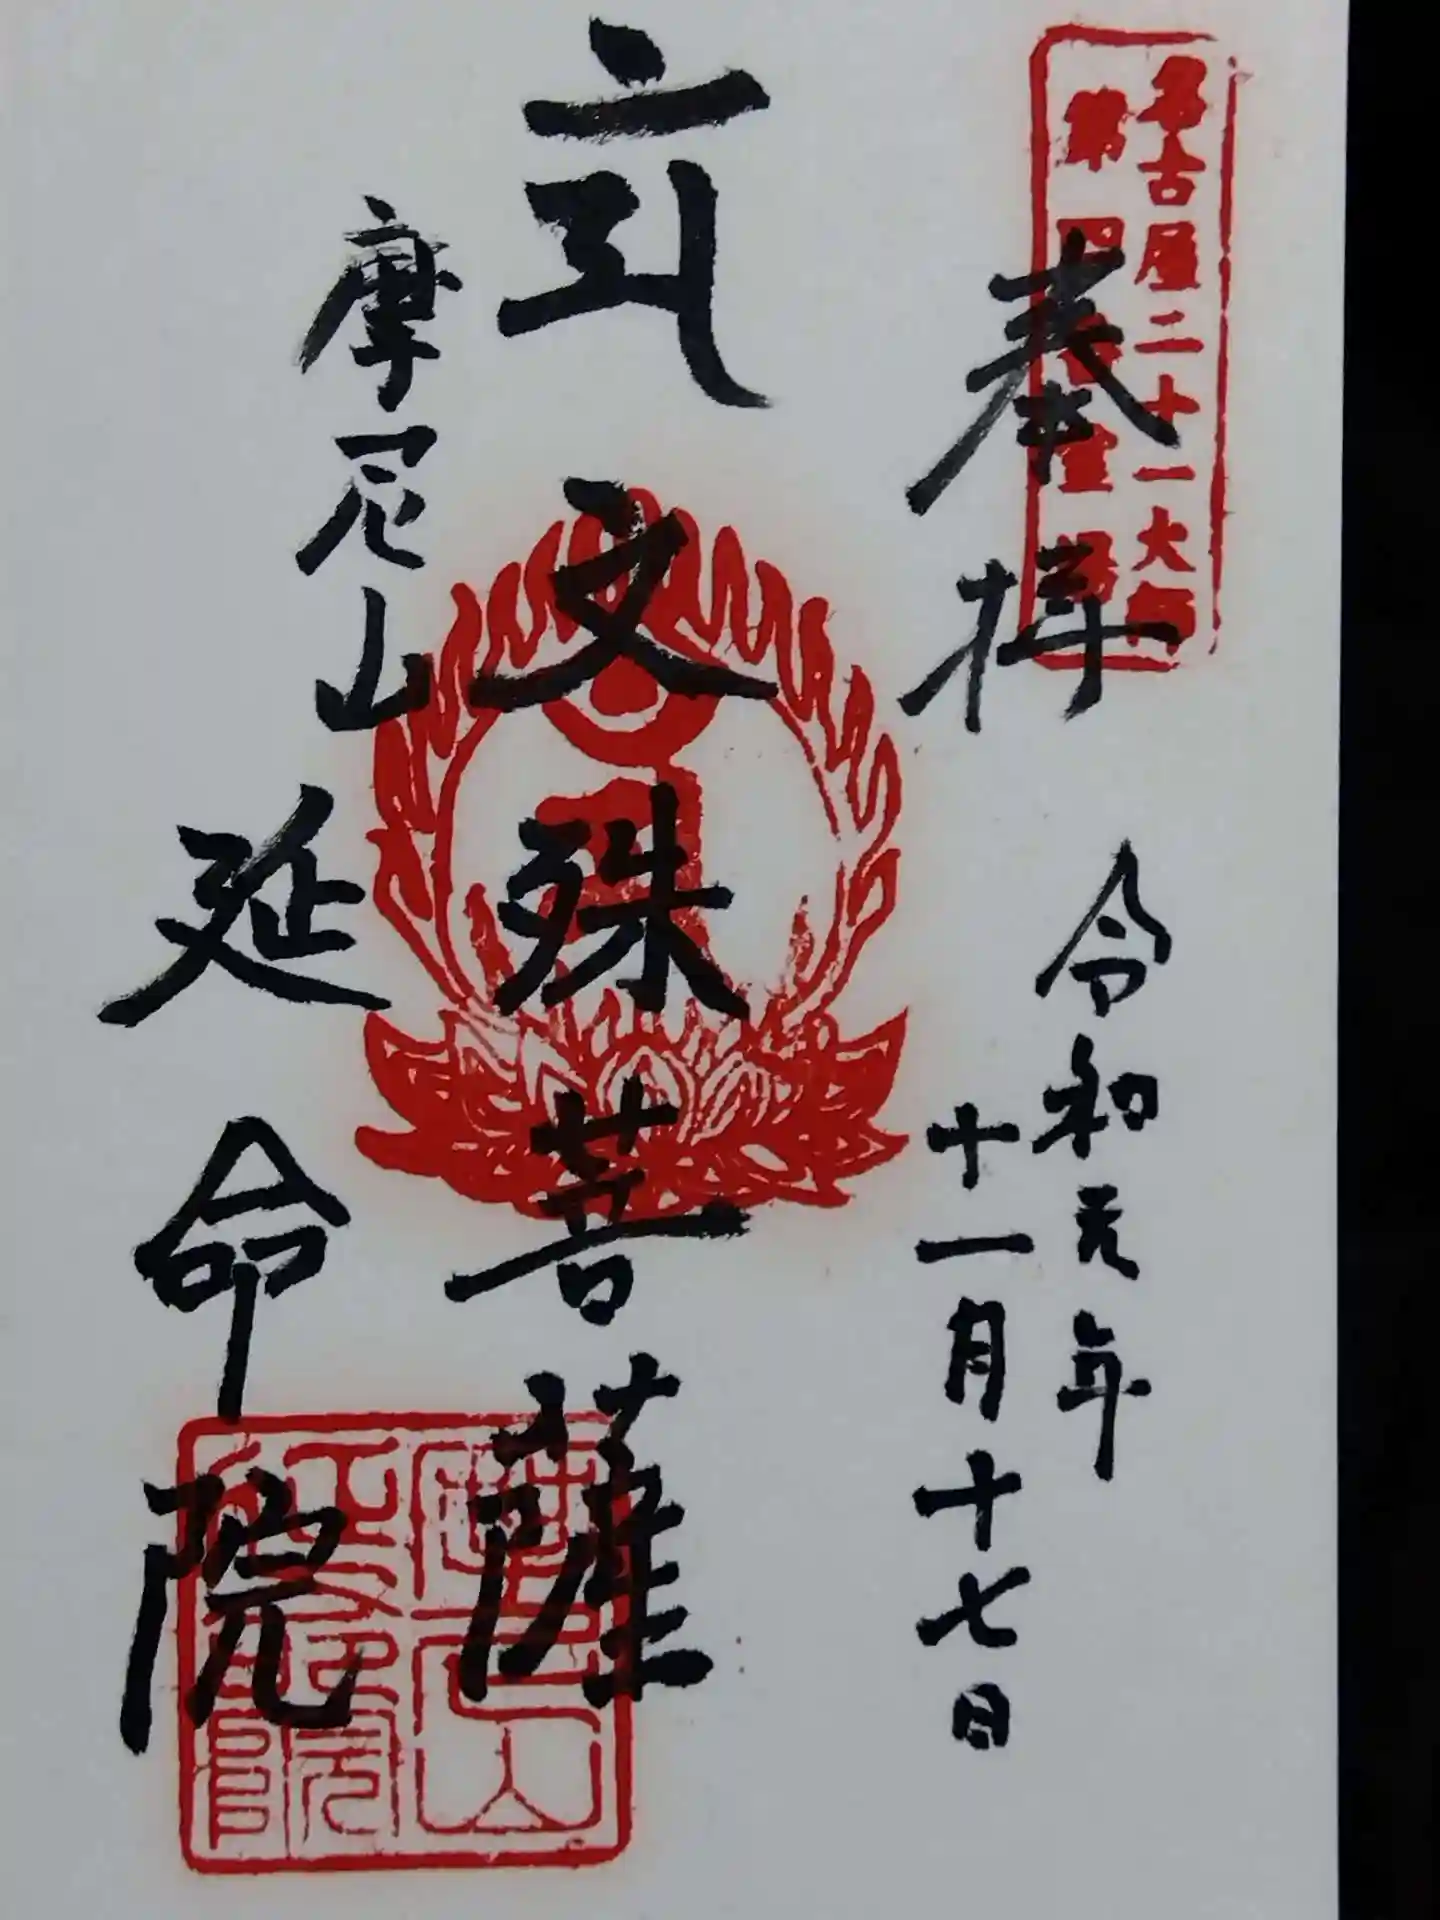 名古屋二十一大師
第四番霊場
奉拝
令和元年
十一月十七日
文殊菩薩
摩尼山
延命院
摩尼山
延命院